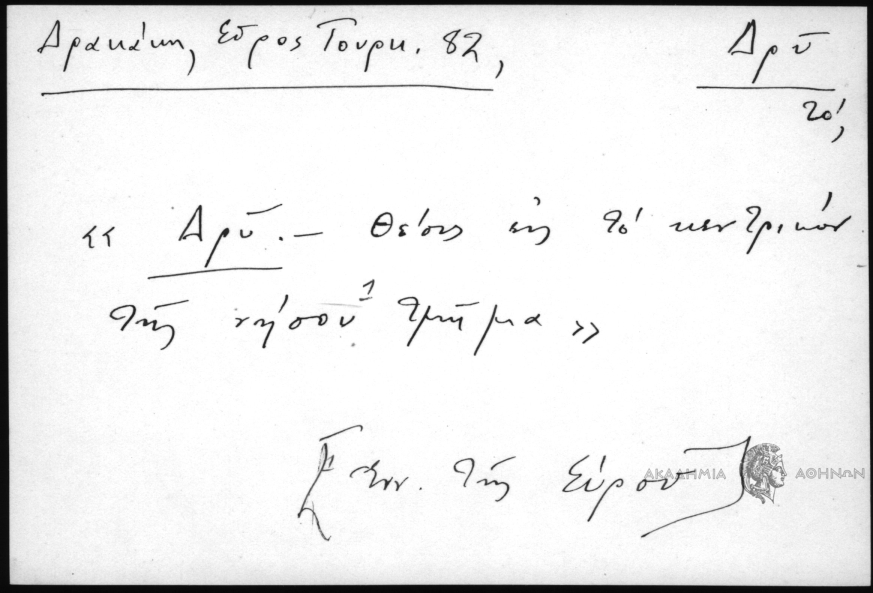 Δρακάκη, Σῦρος Τουρκ. 82,
Δρῦ
τό,
«Δρῦ.— Θέσις εἰς τό κεντρικόν
τῆς νήσου¹ τμῆμα»
[¹ ἐνν. τῆς Σύρου]
ΑΚΑΔΗΜΙΑ ΑΘΗΝΩΝ